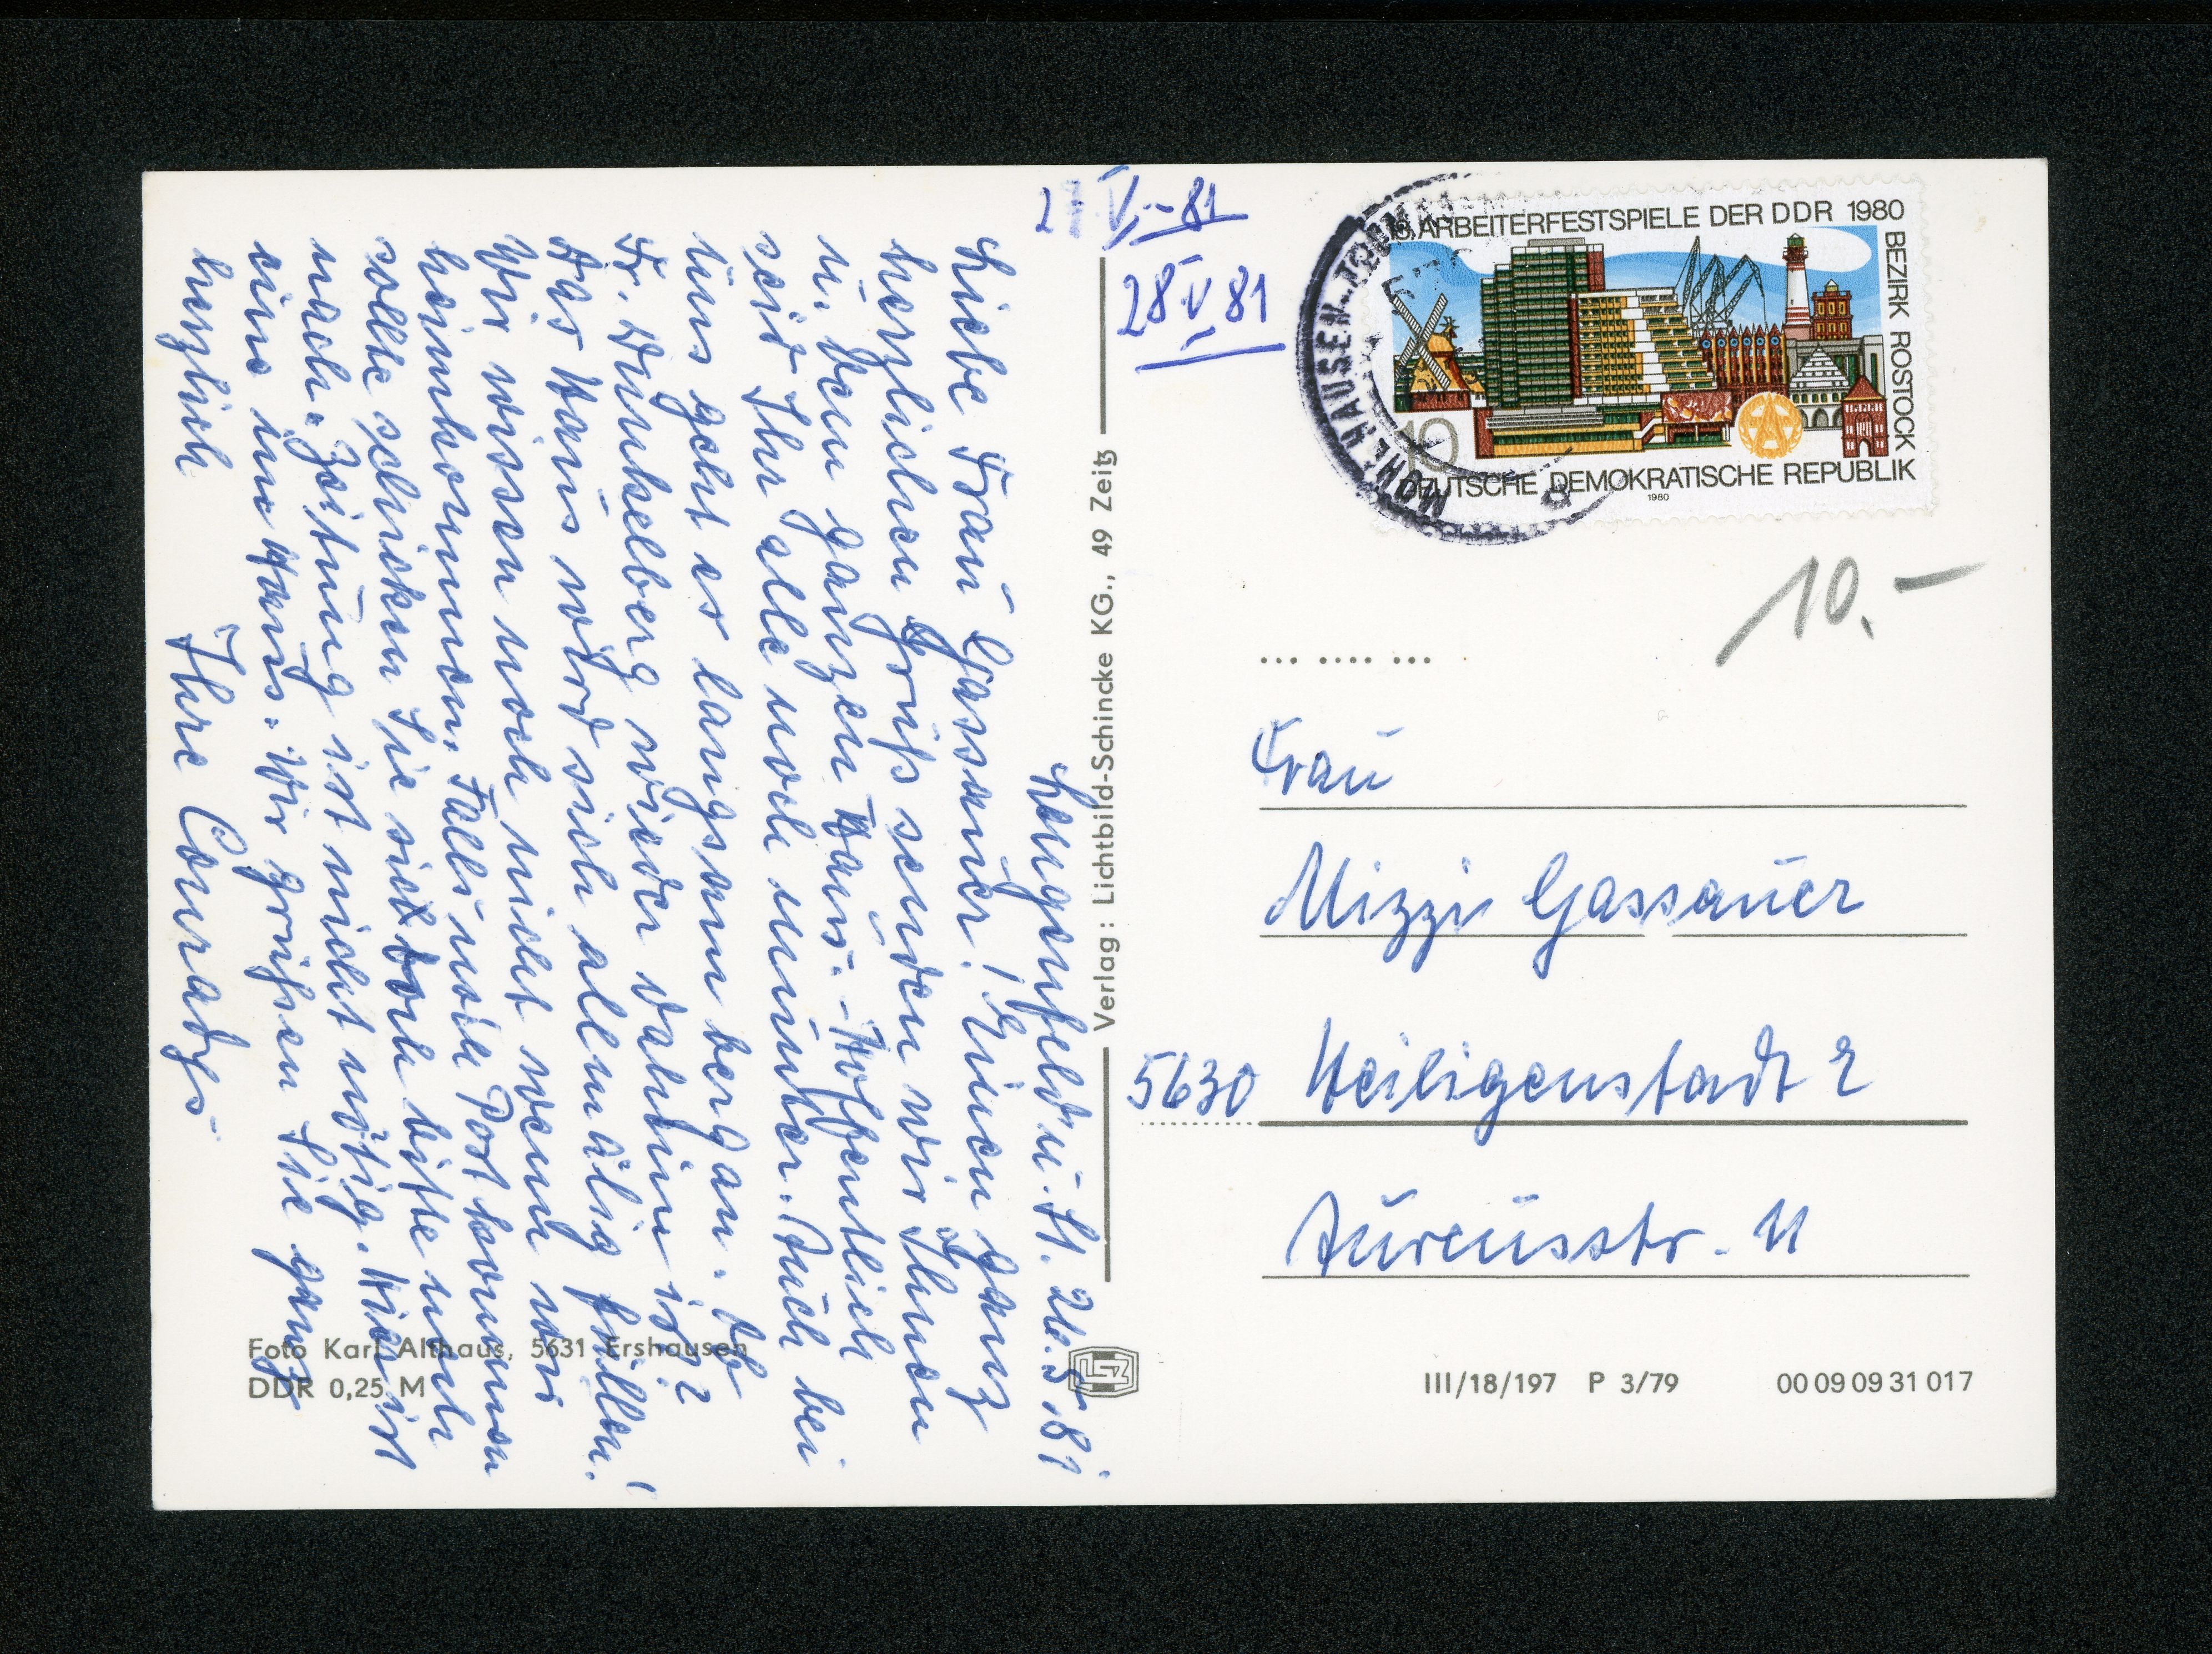 Lengenfeld u. St. 26.5.81
Liebe Frau Gassauer! Einen ganz
herzlichen Gruß senden wir Ihnen
u. dem ganzen Haus. - Hoffentlich
seid Ihr alle noch munter. Auch bei
uns geht es langsam bergan. Ob
Dr. Dunkelberg wieder daheim ist?
Das Haus wird sich allmälig füllen!
Wir wissen noch nicht wenn wir
heimkommen. Falls noch Post kommen
sollte schicken Sie sie doch bitte noch
nach. Zeitung ist nicht nötig. Hier ist
eins im Haus. Wir grüßen Sie ganz
herzlich Ihre Conrads
27 V. - 81
28 V 81
Verlag: Lichtbild-Schincke KG., 49 Zeitz
Foto Karl Althaus, 5631 Ershausen
DDR 0,25 M
18. ARBEITERFESTSPIELE DER DDR 1980
BEZIRK ROSTOCK
10
DEUTSCHE DEMOKRATISCHE REPUBLIK
1980
MÜHLHAUSEN
10.-
Frau
Mizzi Gassauer
5630 Heiligenstadt 2
Aureusstr. 11
III/18/197 P 3/79 00 09 09 31 017